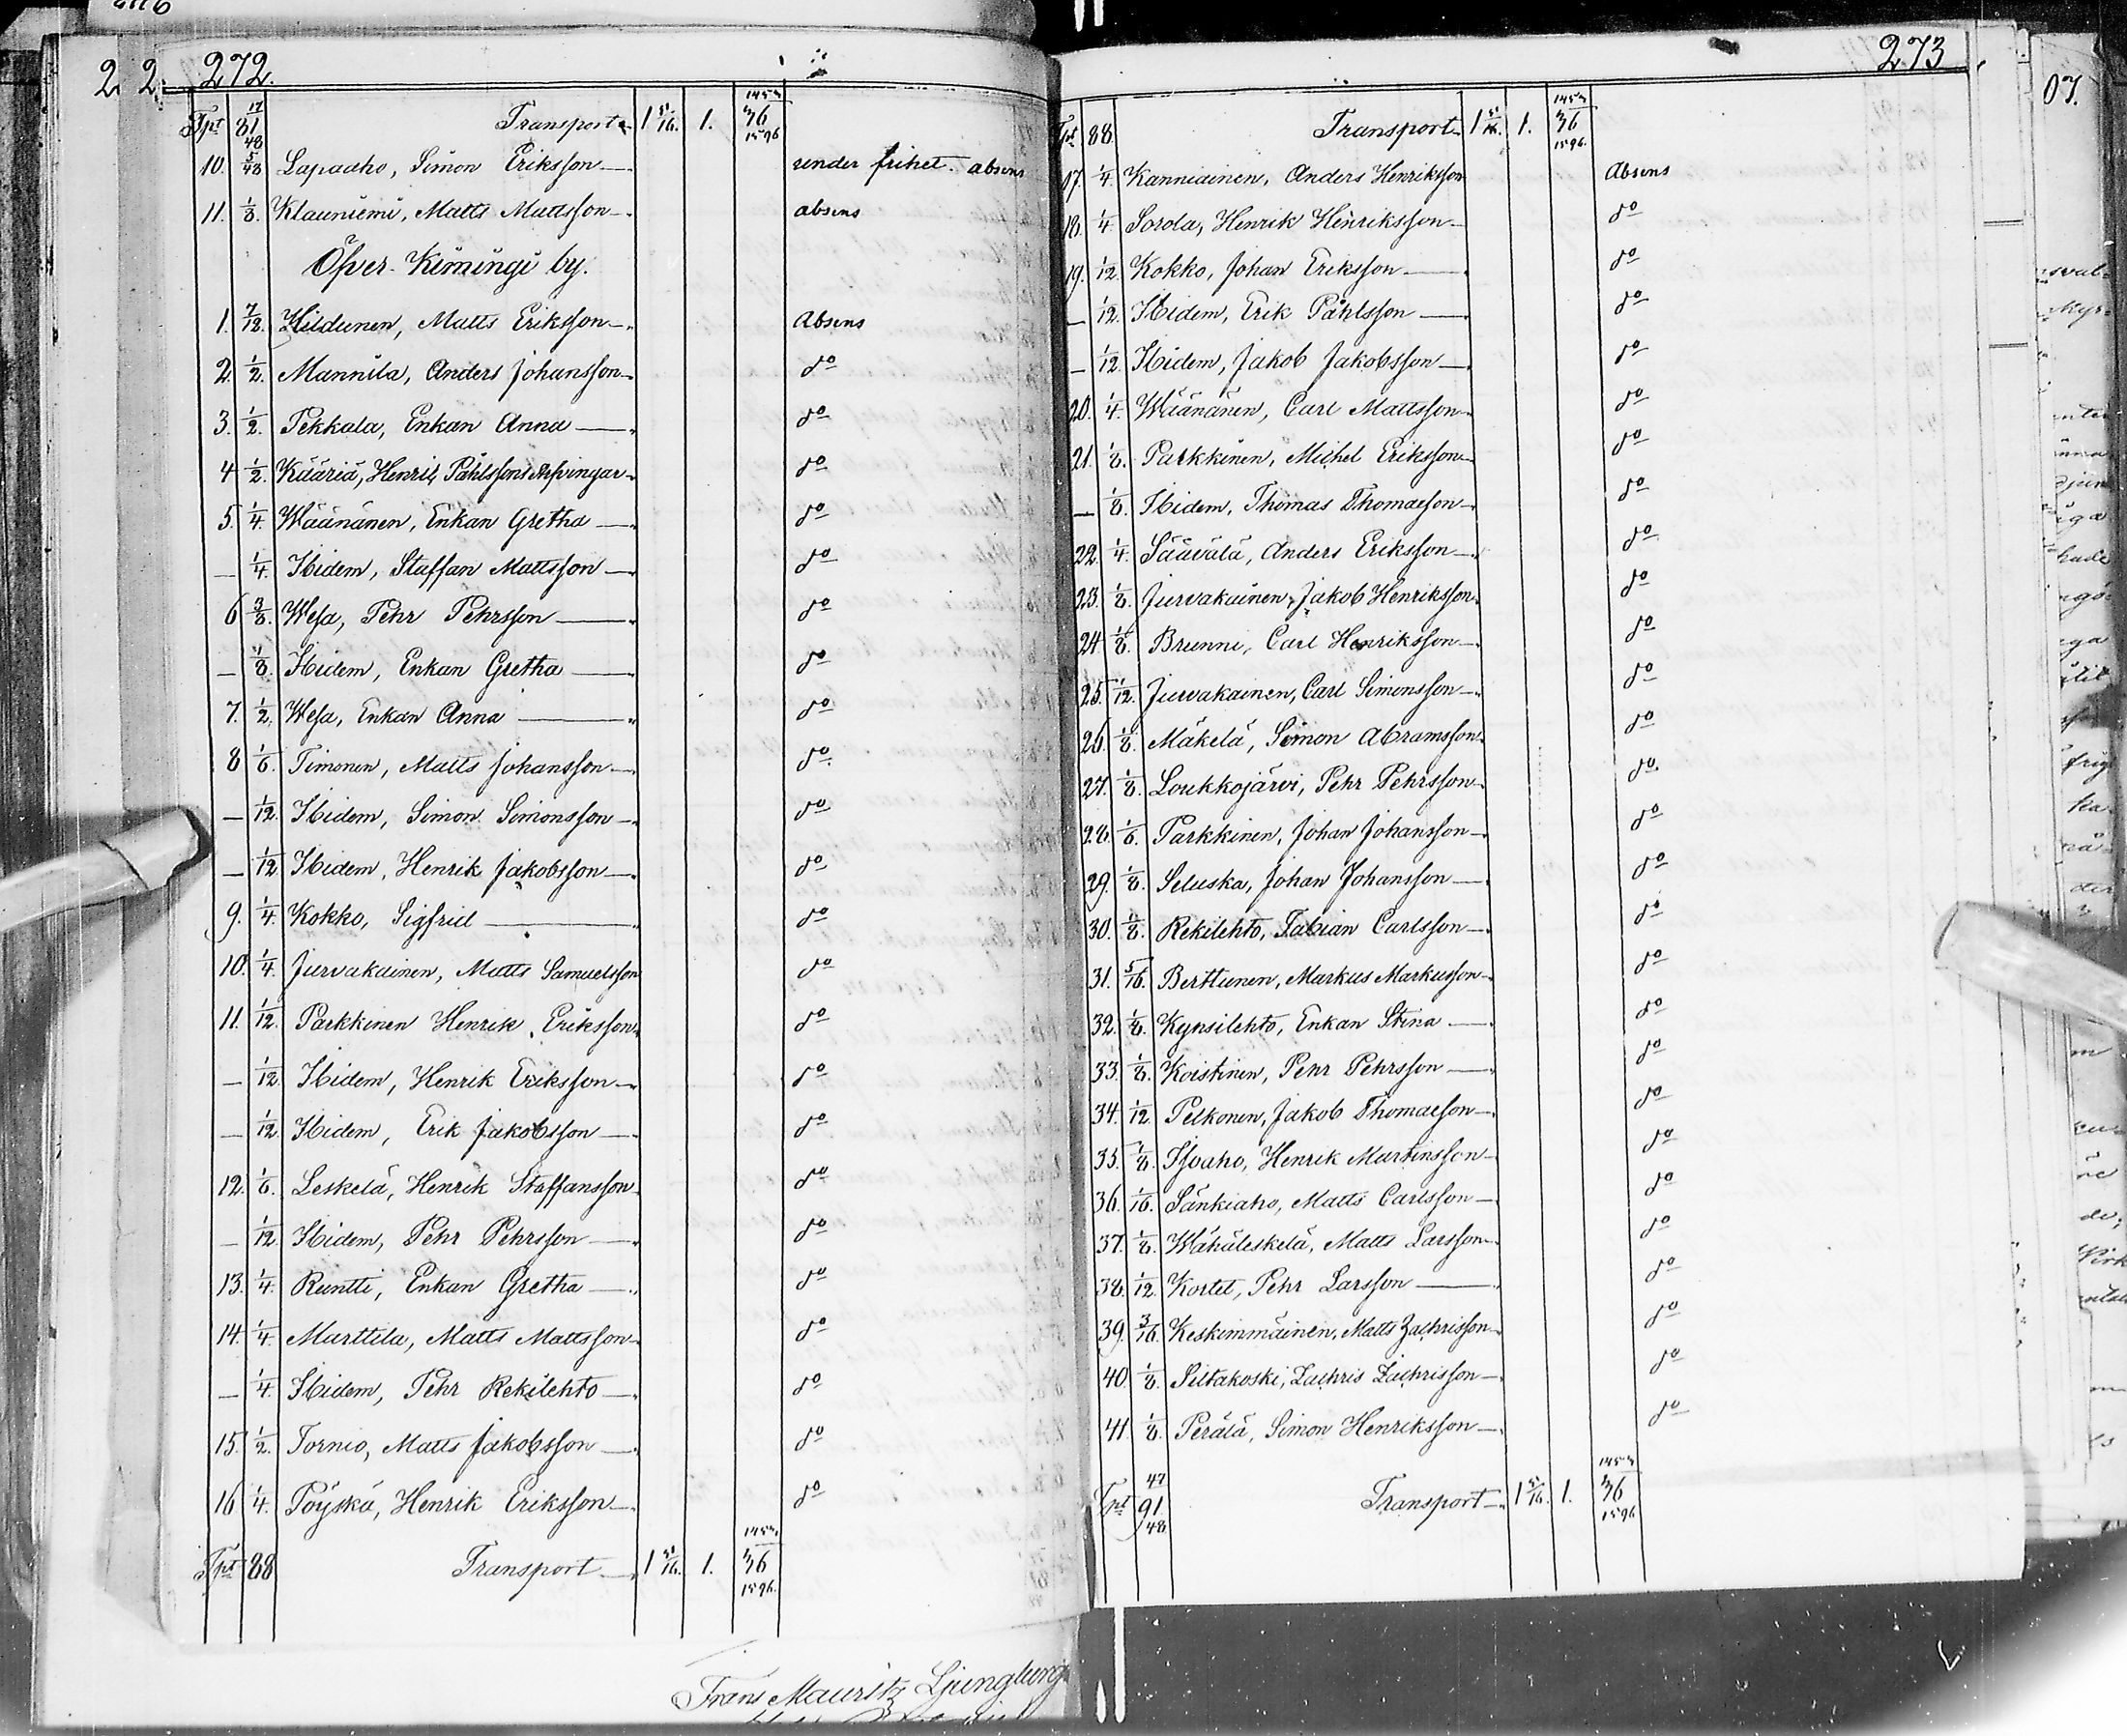 272.
Tpt 81 17/48 Transport 1 5/16. 1. 36 1453/1596
10. 5/48 Lapaaho, Simon Eriksson under frihet. absens
11. 1/8. Klauniemi, Matts Mattsson absens
Öfver Kimingi by.
1. 7/12. Hildunen, Matts Eriksson Absens
2. 1/2. Mannila, Anders Johansson do
3. 1/2. Pekkala, Enkan Anna do
4 1/2. Kääriä, Henrik Påhlssons Arfvingar do
5. 1/4. Wäänänen, Enkan Gretha do
— 1/4. Ibidem, Staffan Mattsson do
6 3/8. Wesa, Pehr Pehrsson do
— 1/8. Ibidem, Enkan Gretha do
7. 1/2. Wesa, Enkan Anna do
8 1/6. Timonen, Matts Johansson do
— 1/12. Ibidem, Simon Simonsson do
— 1/12 Ibidem, Henrik Jakobsson do
9. 1/4. Kokko, Sigfrid do
10. 1/4. Jurvakainen, Matts Samuelsson do
11. 1/12. Parkkinen Henrik Eriksson do
— 1/12. Ibidem, Henrik Eriksson do
— 1/12. Ibidem, Erik Jakobsson do
12. 1/6. Leskelä, Henrik Staffansson do
— 1/12. Ibidem, Pehr Pehrsson do
13. 1/4. Runtti, Enkan Gretha do
14. 1/4. Marttila, Matts Mattsson do
— 1/4. Ibidem, Pehr Rekilehto do
15. 1/2. Tornio, Matts Jakobsson do
16 1/4. Pöyskö, Henrik Eriksson do
Tpt 88 Transport 1 5/16. 1. 36 1453/1596.
Frans Mauritz Ljungberg
273
Tpt 88. Transport 1 5/16. 1. 36 1453/1596.
17. 1/4. Kanniainen, Anders Henriksson Absens
18. 1/4. Sorola, Henrik Henriksson do
19. 1/12. Kokko, Johan Eriksson do
— 1/12. Ibidem, Erik Påhlsson do
— 1/12 Ibidem, Jakob Jakobsson do
20. 1/4. Wäänänen, Carl Mattsson do
21. 1/8. Parkkinen, Michel Eriksson do
— 1/8. Ibidem, Thomas Thomasson do
22. 1/4. Säävälä, Anders Eriksson do
23. 1/8. Jurvakainen, Jakob Henriksson do
24. 1/8. Brunni, Carl Henriksson do
25. 1/12. Jurvakainen, Carl Simonsson do
26. 1/8. Mäkelä, Simon Abramsson do
27. 1/8. Loukkojärvi, Pehr Pehrsson do
28. 1/6. Parkkinen, Johan Johansson do
29. 1/8. Seluska, Johan Johansson do
30. 1/8. Rekilehto, Fabian Carlsson do
31. 5/16. Berttunen, Markus Markusson do
32. 1/8. Kynsilehto, Enkan Stina do
33. 1/8. Koistinen, Pehr Pehrsson do
34. 1/12 Pelkonen, Jakob Thomasson do
35. 1/8. Isoaho, Henrik Martinsson do
36. 1/16. Sänkiaho, Matts Carlsson do
37. 1/8. Wähäleskelä, Matts Larsson do
38. 1/12. Kortet, Pehr Larsson do
39. 3/16. Keskimmäinen, Matts Zachrisson do
40. 1/8. Siltakoski, Zachris Zachrisson do
41. 1/8. Perälä, Simon Henriksson do
Tpt 91 47/48 Transport 1 5/16. 1. 36 1453/1596
07.